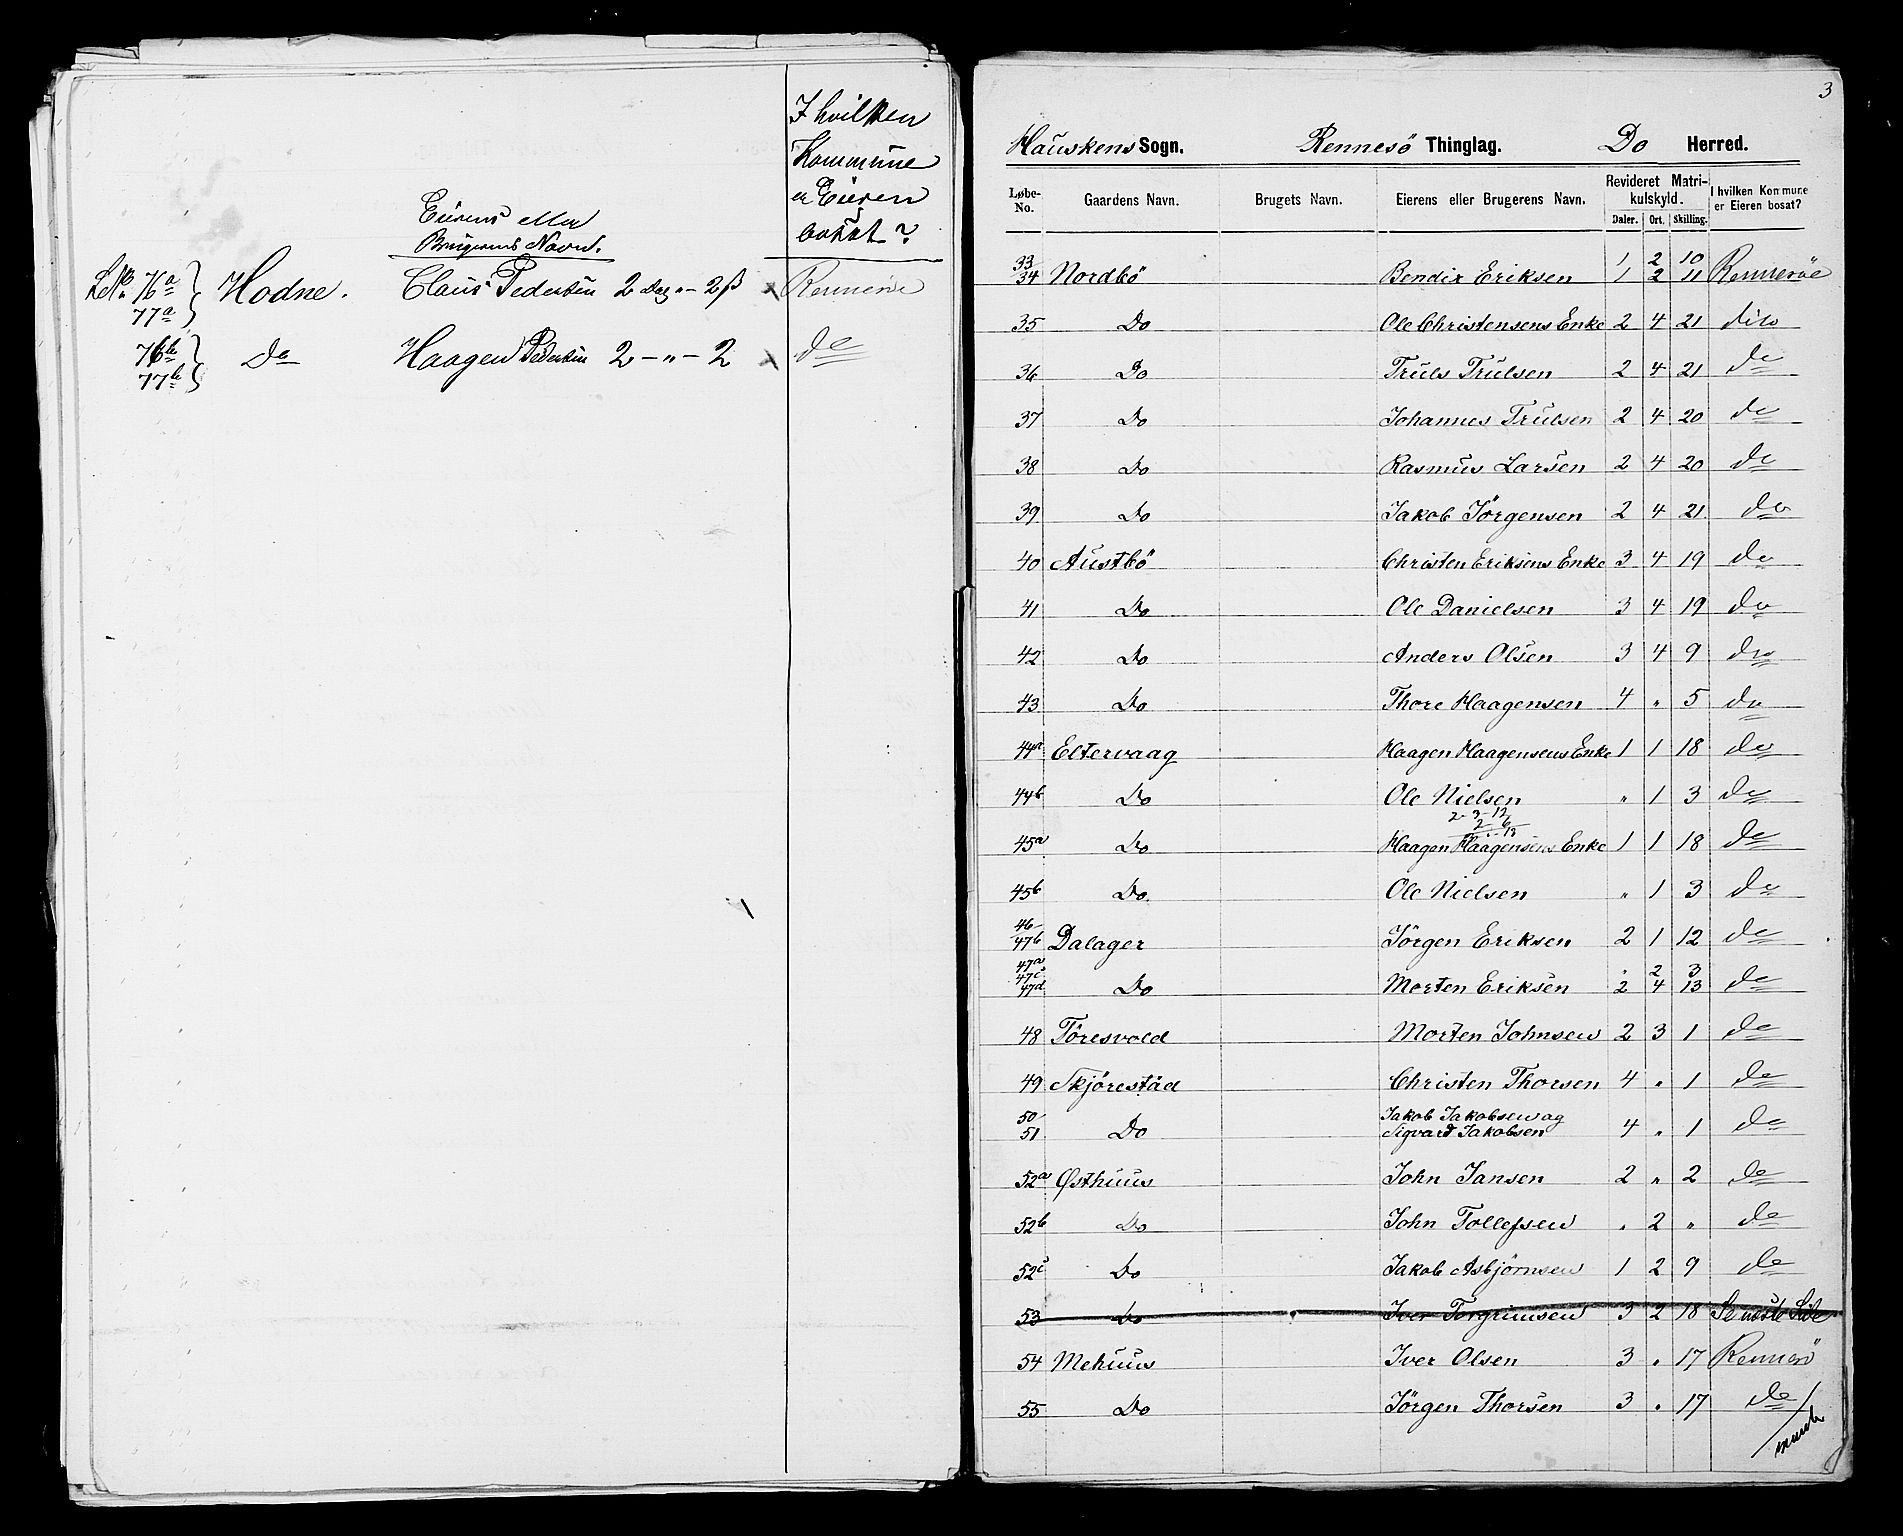 I hvilken
Kommune
er Eieren
bosat?
Eierens eller
Brugerens Navn.
LNo. 76a 77a Hodne. Claus Pedersen 2 Dlr „ - 2 ß x Rennesøe
76b 77b Do Haagen Pedersen 2 - „ - 2 x do
3
Hauskens Sogn. Rennesö Thinglag. Do Herred.
Løbe-No. Gaardens Navn. Brugets Navn. Eierens eller Brugerens Navn. Revideret Matrikulskyld. Daler. Ort. Skilling. I hvilken Kommune er Eieren bosat?
33 1 2 10
34 Nordbö Bendix Eriksen 1 2 11 Rennesöe
35 Do Ole Christensens Enke 2 4 21 dito
36 Do Truls Trulsen 2 4 21 do
37 Do Johannes Trulsen 2 4 20 do
38 Do Rasmus Larsen 2 4 20 do
39 Do Jakob Jörgensen 2 4 21 do
40 Austbö Christen Eriksens Enke 3 4 19 do
41 Do Ole Danielsen 3 4 19 do
42 Do Anders Olsen 3 4 9 do
43 Do Thore Haagensen 4 „ 5 do
44a Eltervaag Haagen Haagensens Enke 1 1 18 do
44b Do Ole Nielsen „ 1 3 do
2-3-12
2-6
45a Do Haagen Haagensens Enke 1 1 18 do
45b Do Ole Nielsen „ 1 3 do
46
47b Dalager Jörgen Eriksen 2 1 12 do
47a
47c „ 2 3
47d Do Morten Eriksen 2 4 13 do
48 Töresvold Morten Johnsen 2 3 1 do
49 Skjörestad Christen Thorsen 4 „ 1 do
50 Jakob Jakobsen og
51 Do Sigvard Jakobsen 4 „ 1 do
52a Østhuus John Jansen 2 „ 2 do
52b Do John Tollefsen „ 2 „ do
52c Do Jakob Asbjörnsen 1 2 9 do
53 Do Iver Torgrimsen 3 2 18 Se næste Side
54 Mehuus Iver Olsen 3 „ 17 Rennesö
55 Do Jörgen Thorsen 3 „ 17 do